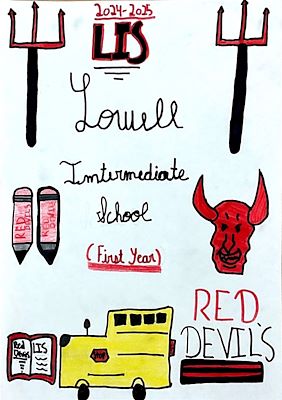 2024-2025
LIS
Lowell
Imtermediate
School
(First Year)
RED DEVILS
RED DEVILS
RED
DEVIL'S
Red Devils
LIS
STOP